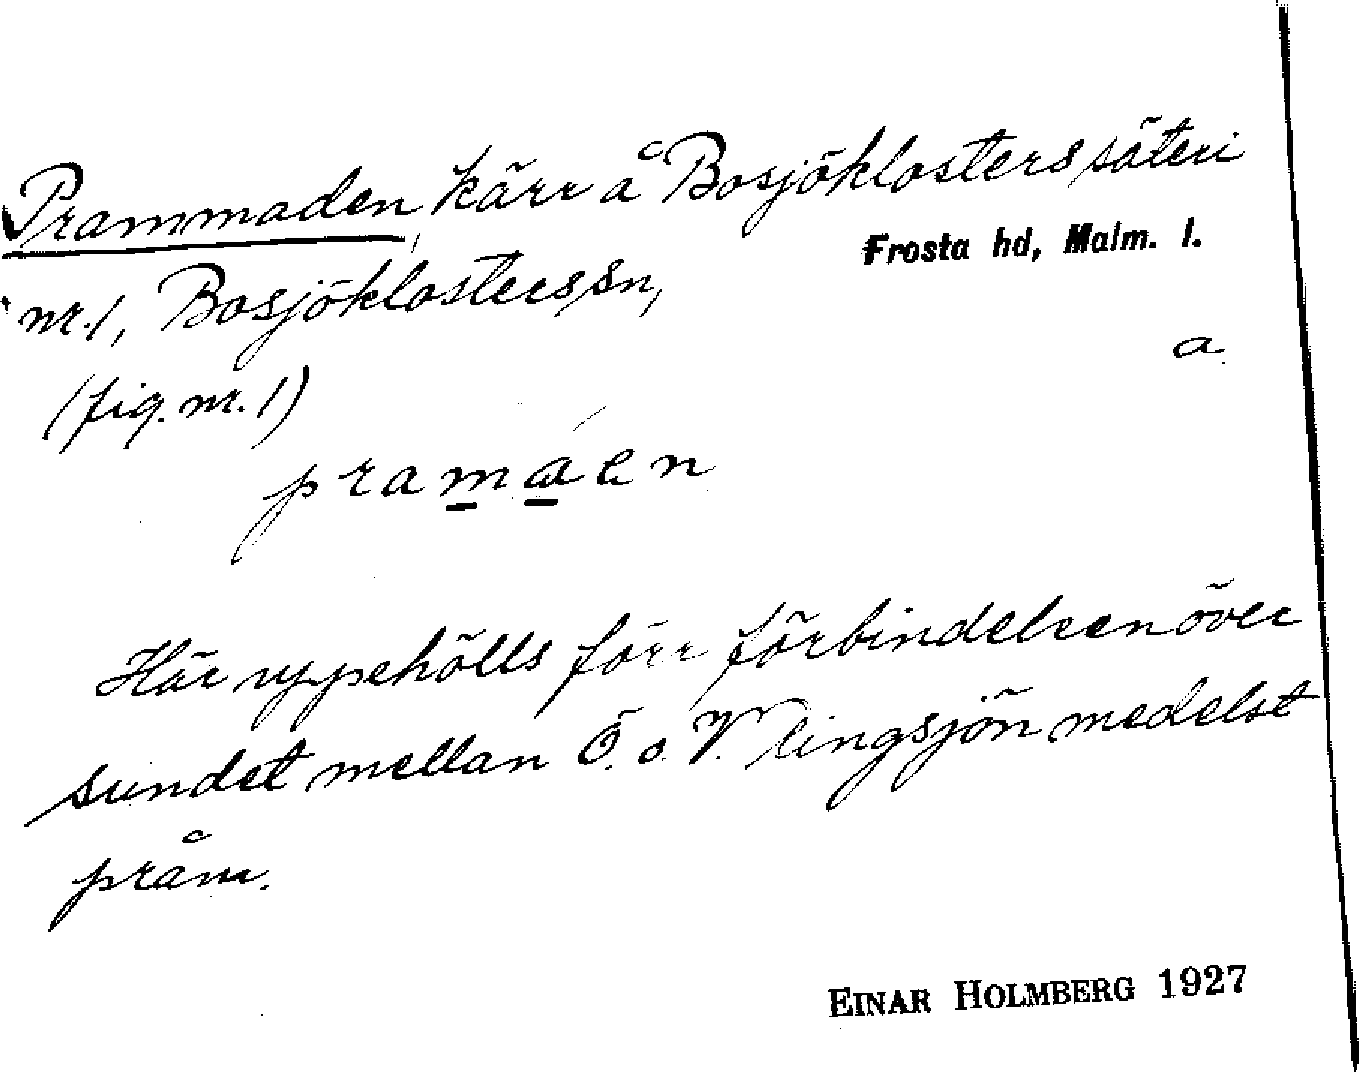 Prammaden, kärr å Bosjöklosters säteri
Frosta hd, Malm. l.
nr. 1, Bosjöklosters sn,
a
(fig. nr. 1)
Här uppehölls förr förbindelsen över
sundet mellan Ö. o. V. Ringsjön medelst
pråm.
EINAR HOLMBERG 1927